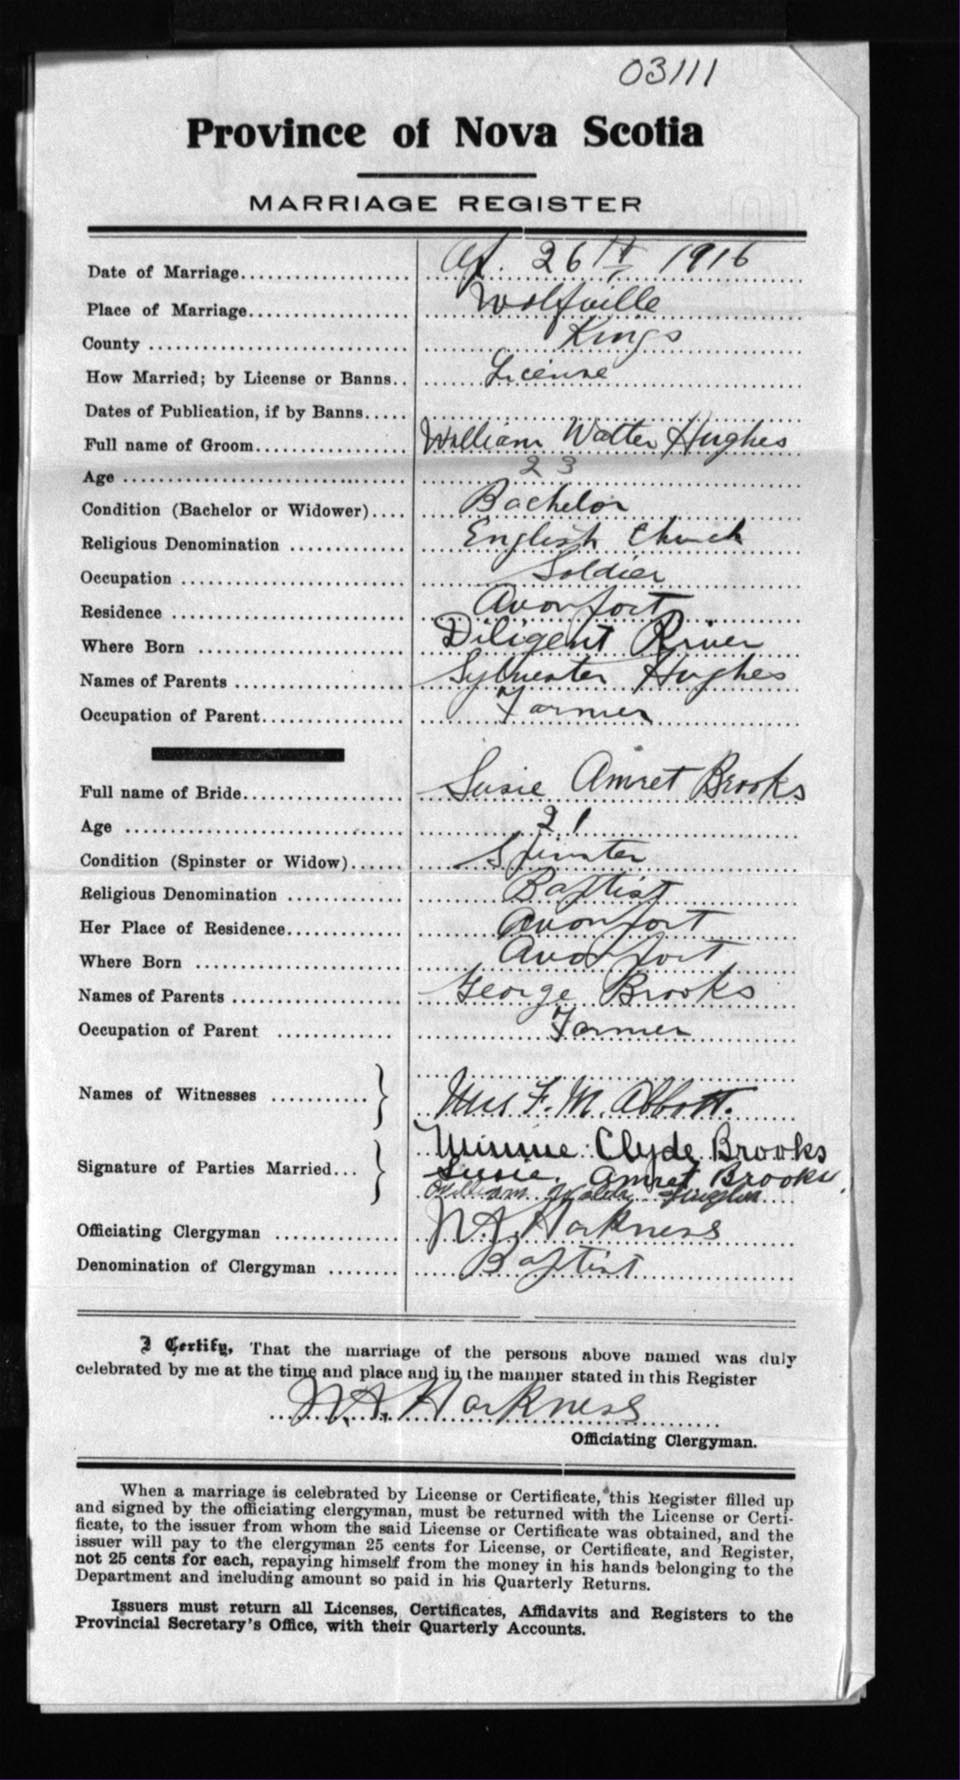 03111
Province of Nova Scotia
MARRIAGE REGISTER
Date of Marriage Ap. 26th 1916
Place of Marriage Wolfville
County Kings
How Married; by License or Banns License
Dates of Publication, if by Banns
Full name of Groom William Walter Hughes
Age 23
Condition (Bachelor or Widower) Bachelor
Religious Denomination English Church
Occupation Soldier
Residence Avonport
Where Born Diligent River
Names of Parents Sylvester Hughes
Occupation of Parent Farmer
Full name of Bride Susie Amret Brooks
Age 21
Condition (Spinster or Widow) Spinster
Religious Denomination Baptist
Her Place of Residence Avonport
Where Born Avonport
Names of Parents George Brooks
Occupation of Parent Farmer
Names of Witnesses Mrs F. M. Abbott.
Minnie Clyde Brooks
Signature of Parties Married Susie Amret Brooks.
William Walter Hughes
Officiating Clergyman N. A. Harkness
Denomination of Clergyman Baptist
I Certify, That the marriage of the persons above named was duly
celebrated by me at the time and place and in the manner stated in this Register
N. A. Harkness
Officiating Clergyman.
When a marriage is celebrated by License or Certificate, this Register filled up
and signed by the officiating clergyman, must be returned with the License or Certi-
ficate, to the issuer from whom the said License or Certificate was obtained, and the
issuer will pay to the clergyman 25 cents for License, or Certificate, and Register,
not 25 cents for each, repaying himself from the money in his hands belonging to the
Department and including amount so paid in his Quarterly Returns.
Issuers must return all Licenses, Certificates, Affidavits and Registers to the
Provincial Secretary's Office, with their Quarterly Accounts.